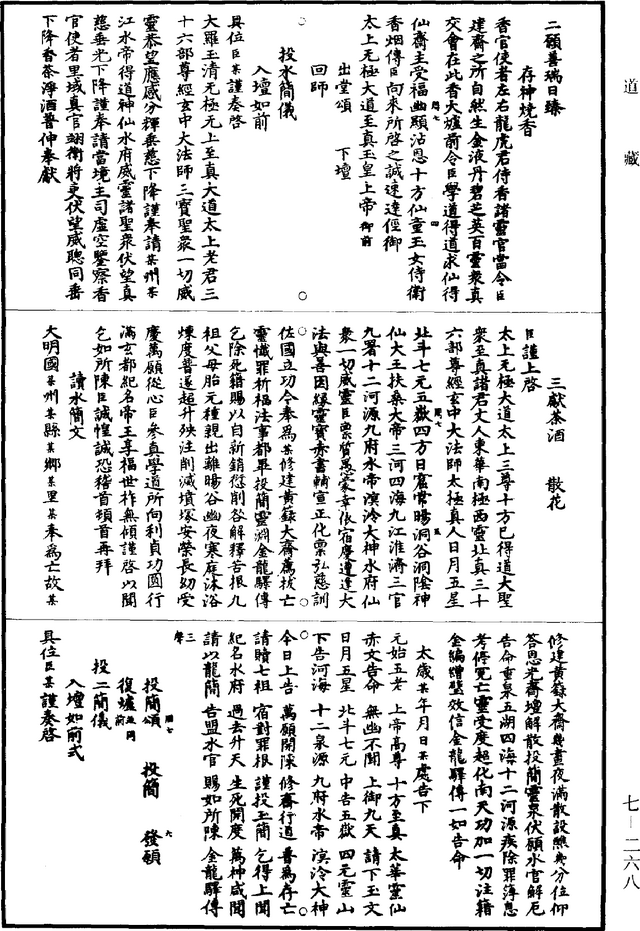 道藏
二願善瑞日臻
存神燒香
香官使者左右龍虎君侍香諸靈官當令臣
建齋之所自然生金液丹碧芝英百靈衆真
交會在此香火爐前令臣學道得道求仙得
仙齋主受福幽顯沾恩十方仙童玉女侍衛
香烟傳臣向來所啓之誠速達徑御
太上无極大道至真玉皇上帝御前
出堂頌 下壇
回師
投水簡儀
入壇如前
具位臣某謹奏啓
大羅玉清元極元上至真大道太上老君三
十六部尊經玄中大法師三寶聖衆一切威
靈恭望應感分輝垂慈下降謹奉請某州某
江水帝得道神仙水府威靈諸聖衆伏望真
慈垂光下降謹奉請當境主司虛空鑒察香
官使者里域真官翊衛將吏伏望威聰同垂
下降香茶淨酒普伸奉獻
三獻茶酒 散花
臣謹上啓
太上无極大道太上三尊十方已得道大聖
衆至真諸君丈人東華南極西靈北真三十
六部尊經玄中大法師太極真人日月五星
北斗七元五嶽四方日窟常暘洞谷洞陰神
仙大王扶桑大帝三河四海九江淮濟三官
九署十二河源九府水帝溟泠大神水府仙
衆一切威靈臣禀質蒙幸依宿慶遭逢大
法與善因緣靈寶赤書輔宣正化禀弘慈訓
佐國立功今奉爲某修建黃籙大齋薦拔亡
靈懺罪祈福法事都畢投簡靈淵金龍驛傳
乞除死籍賜以自新銷愆削咎解釋苦根九
祖父母胎元種親出離暘谷幽夜寒庭沐浴
煉度普遂超升殃注削滅墳塚安榮長幼受
慶萬願從心臣參真學道所向利貞功圓行
滿玄都紀名帝王享福世祚無傾謹啓以聞
乞如所陳臣誠惶誠恐稽首頓首再拜
讀水簡文
大明國某州某縣某鄉某里某奉爲亡故某
修建黃籙大齋幾晝夜滿散設醮幾分位仰
答恩光齋壇解散投簡靈泉伏願水官解厄
告命重泉五湖四海十二河源疾除罪簿息
考停冤亡靈受度超化南天功加一切注籍
金編繒壁效信金龍驛傳一如告命
太歲某年月日某處告下
元始五老 上帝高尊 十方至真 太華靈仙
赤文告命 無幽不開 上御九天 請下玉文
日月五星 北斗七元 中告五嶽 四元靈山
下告河海 十二泉源 九府水帝 溟泠大神
今日上告 萬願開陳 修齋行道 普爲存亡
請贖七祖 宿對罪根 謹投玉簡 乞得上聞
紀名水府 過去升天 生死開度 萬神咸聞
請以龍簡 告盟水官 賜如所陳 金龍驛傳
三聲
投簡頌 投簡 發願
復爐並同前
投二簡儀
入壇如前式
具位臣某謹奏啓
七—二六八